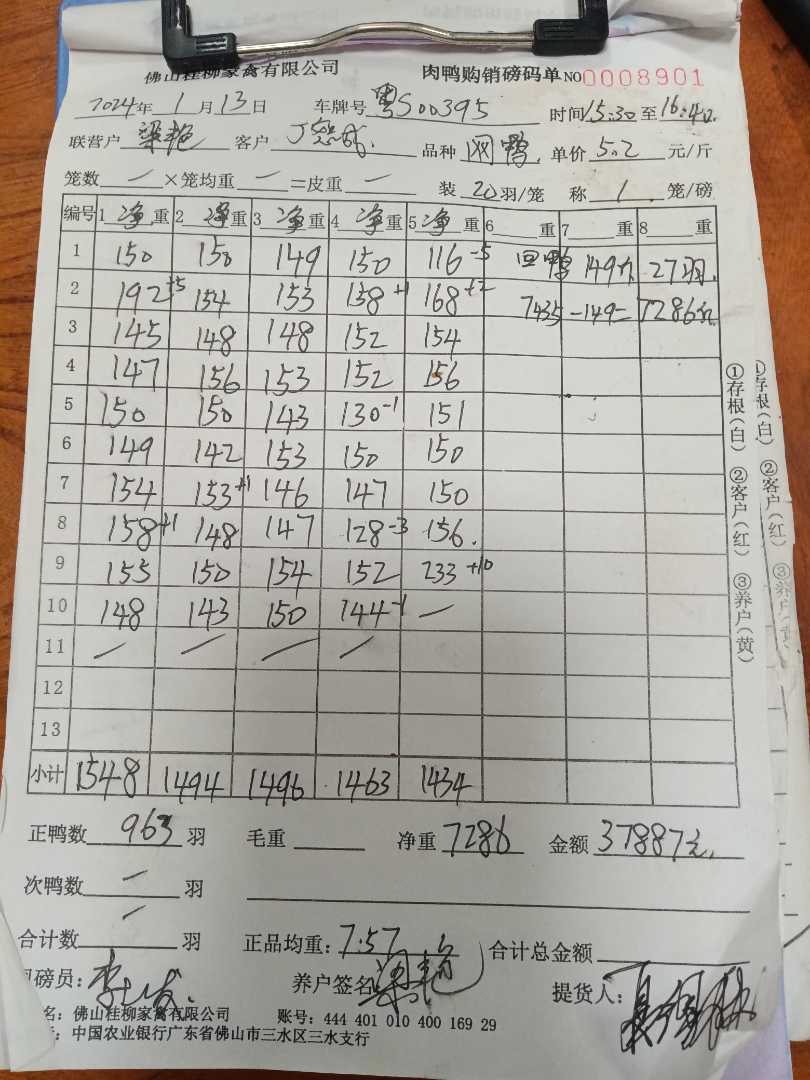 佛山桂柳家禽有限公司 肉鸭购销磅码单 NO0008901
2024年 1月 13日 车牌号 粤S00395 时间 15:30 至 16:40
联营户 梁艳 客户 品种 网鸭 单价 5.2 元/斤
笼数 — ×笼均重 — =皮重 — 装 20 羽/笼 称 1 笼/磅
编号 1 净 重 2 净 重 3 净 重 4 净 重 5 净 重 6 重 7 重 8 重
1 150 150 149 150 116 -5 回鸭 149斤 27羽.
2 192 +5 154 153 158 +1 168 +2 7435 -149= 7286斤.
3 145 148 148 152 154
4 147 156 153 152 156
5 150 150 143 130 -1 151
6 149 142 153 150 150
7 154 153 +1 146 147 150
8 158 +1 148 147 128 -3 156.
9 155 150 154 152 233 +10
10 148 143 150 144 -1 —
11 — — — —
12
13
小计 1548 1494 1496 1463 1434
正鸭数 963 羽 毛重 净重 7286 金额 37887元.
次鸭数 — 羽
合计数 — 羽 正品均重: 7.57 合计总金额
磅员: 养户签名 梁艳 提货人:
名: 佛山桂柳家禽有限公司 账号: 444 401 010 400 169 29
: 中国农业银行广东省佛山市三水区三水支行
①存根(白) ②客户(红) ③养户(黄)
①存根(白) ②客户(红) ③养户(黄)